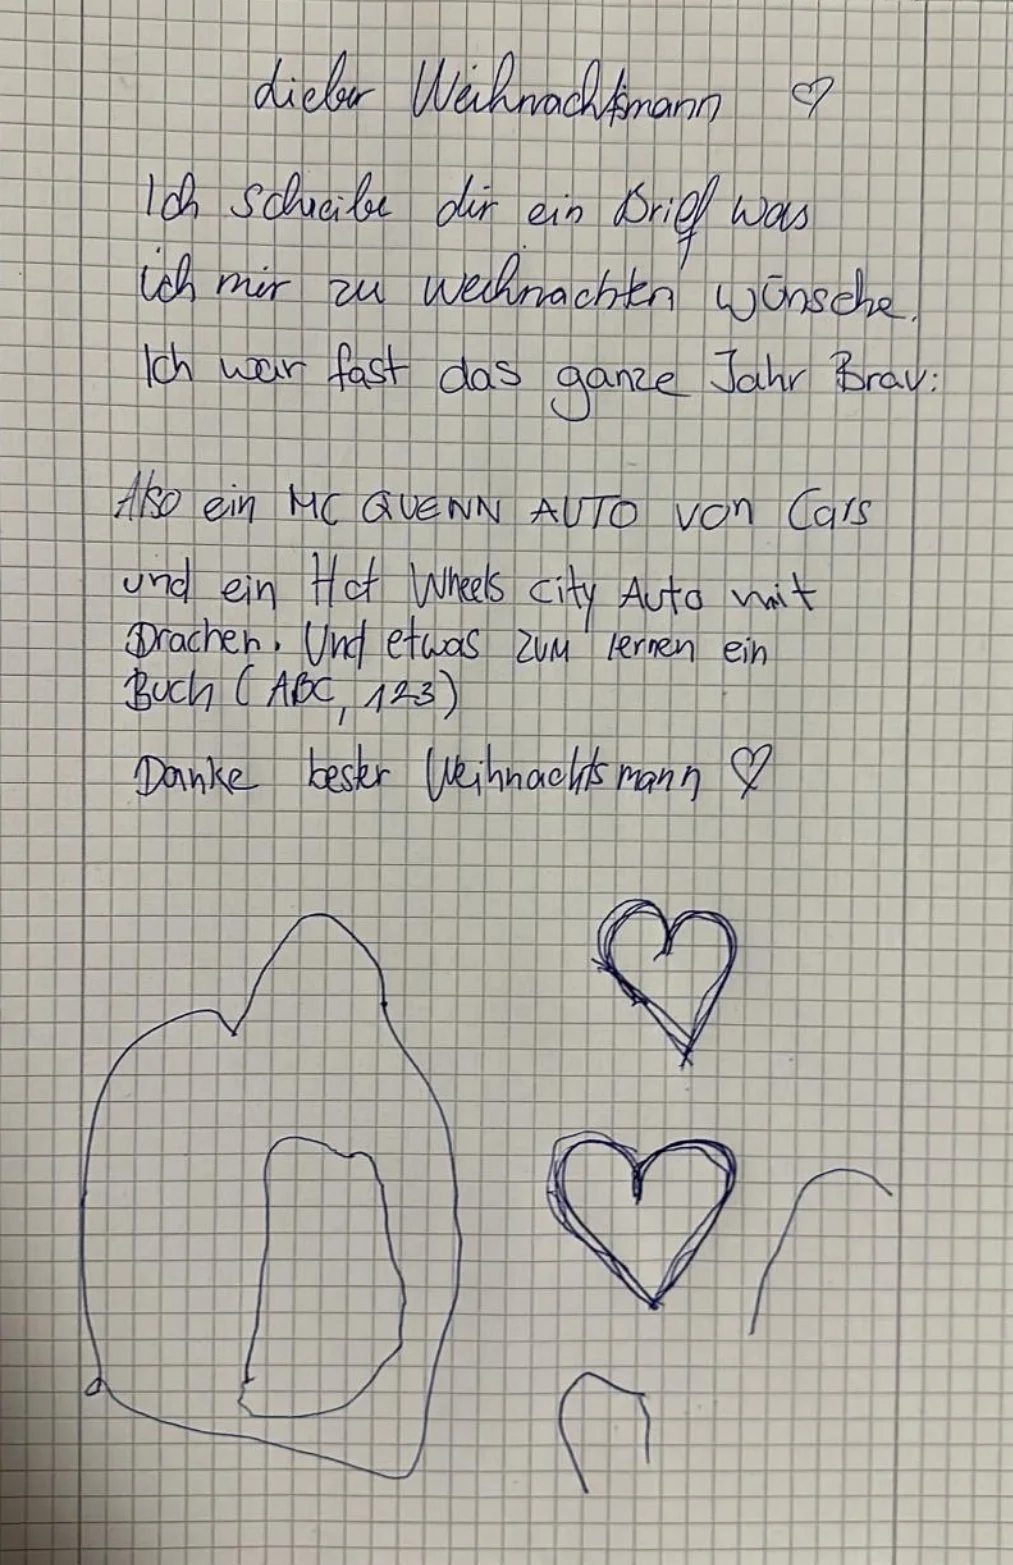 lieber Weihnachtsmann ♡
Ich schreibe dir ein Brief was
ich mir zu weihnachten wünsche.
Ich war fast das ganze Jahr Brav:
Also ein MC QUENN AUTO von Cars
und ein Hot Wheels city Auto mit
Drachen. Und etwas zum lernen ein
Buch (ABC, 123)
Danke bester Weihnachtsmann ♡